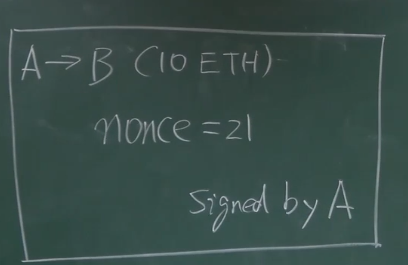 A → B (10 ETH)
nonce = 21
Signed by A